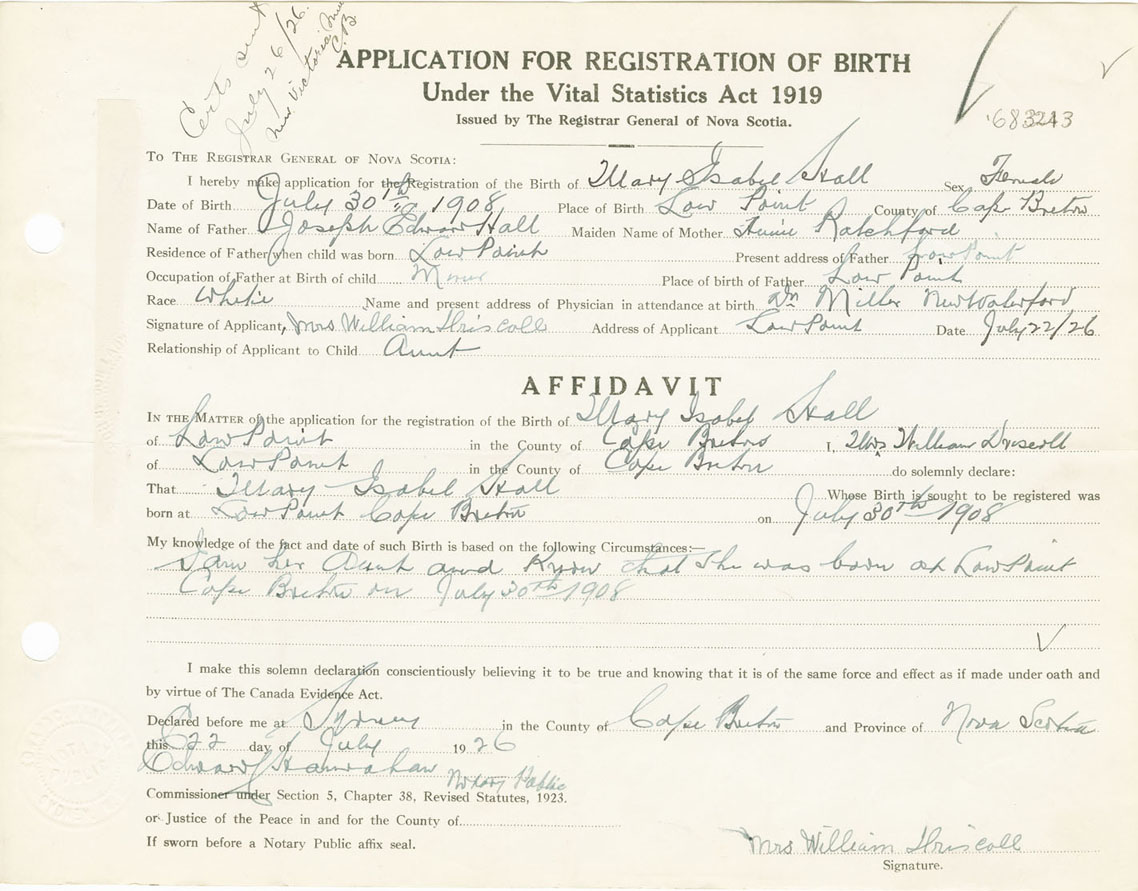 Certs sent
July 26/26
New Victoria Mines
C.B.
APPLICATION FOR REGISTRATION OF BIRTH
Under the Vital Statistics Act 1919
Issued by The Registrar General of Nova Scotia.
683243
TO THE REGISTRAR GENERAL OF NOVA SCOTIA:
I hereby make application for the Registration of the Birth of Mary Isabel Hall Sex Female
Date of Birth July 30th 1908 Place of Birth Low Point County of Cape Breton
Name of Father Joseph Edward Hall Maiden Name of Mother Annie Ratchford
Residence of Father when child was born Low Point Present address of Father Low Point
Occupation of Father at Birth of child Miner Place of birth of Father Low Point
Race White Name and present address of Physician in attendance at birth Dr Miller New Waterford
Signature of Applicant, Mrs William Driscoll Address of Applicant Low Point Date July 22/26
Relationship of Applicant to Child Aunt
AFFIDAVIT
IN THE MATTER of the application for the registration of the Birth of Mary Isabel Hall
of Low Point in the County of Cape Breton I, Mrs William Driscoll
of Low Point in the County of Cape Breton do solemnly declare:
That Mary Isabel Hall Whose Birth is sought to be registered was
born at Low Point Cape Breton on July 30th 1908
My knowledge of the fact and date of such Birth is based on the following Circumstances:—
I am her Aunt and Know that she was born at Low Point
Cape Breton on July 30th 1908
I make this solemn declaration conscientiously believing it to be true and knowing that it is of the same force and effect as if made under oath and
by virtue of The Canada Evidence Act.
Declared before me at Sydney in the County of Cape Breton and Province of Nova Scotia
this 22 day of July 1926
Edward J Hanrahan Notary Public
Commissioner under Section 5, Chapter 38, Revised Statutes, 1923.
or Justice of the Peace in and for the County of
If sworn before a Notary Public affix seal.
Mrs William Driscoll
Signature.